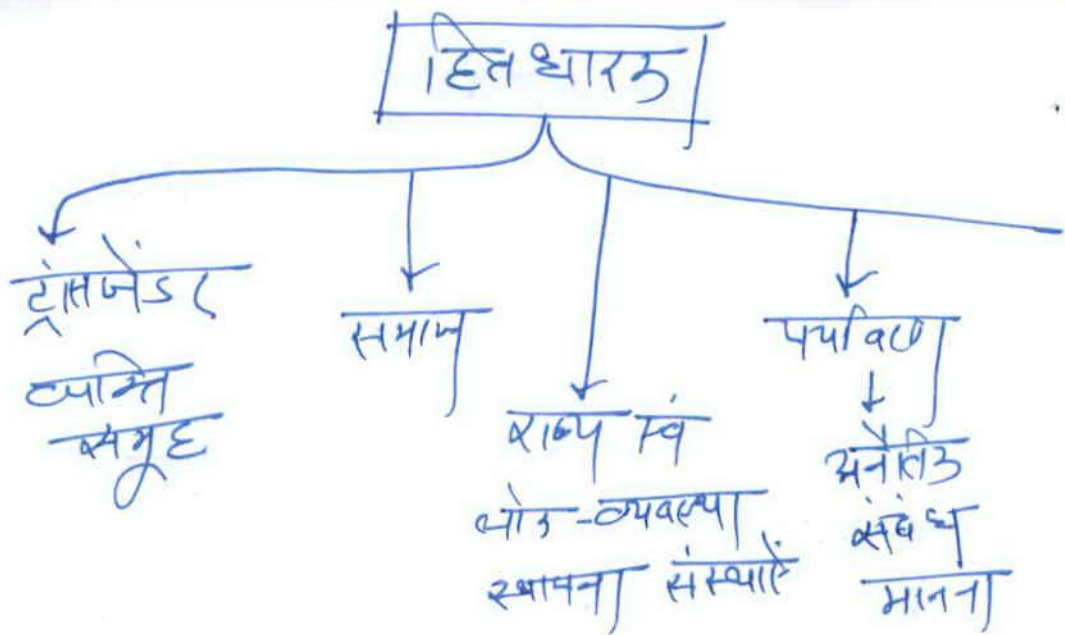 हितधारक
ट्रांसजेंडर
व्यक्ति
समूह
समाज
राज्य एवं
लोक-व्यवस्था
स्थापना संस्थाएँ
पर्यावरण
अनैतिक
संबंध
मानना